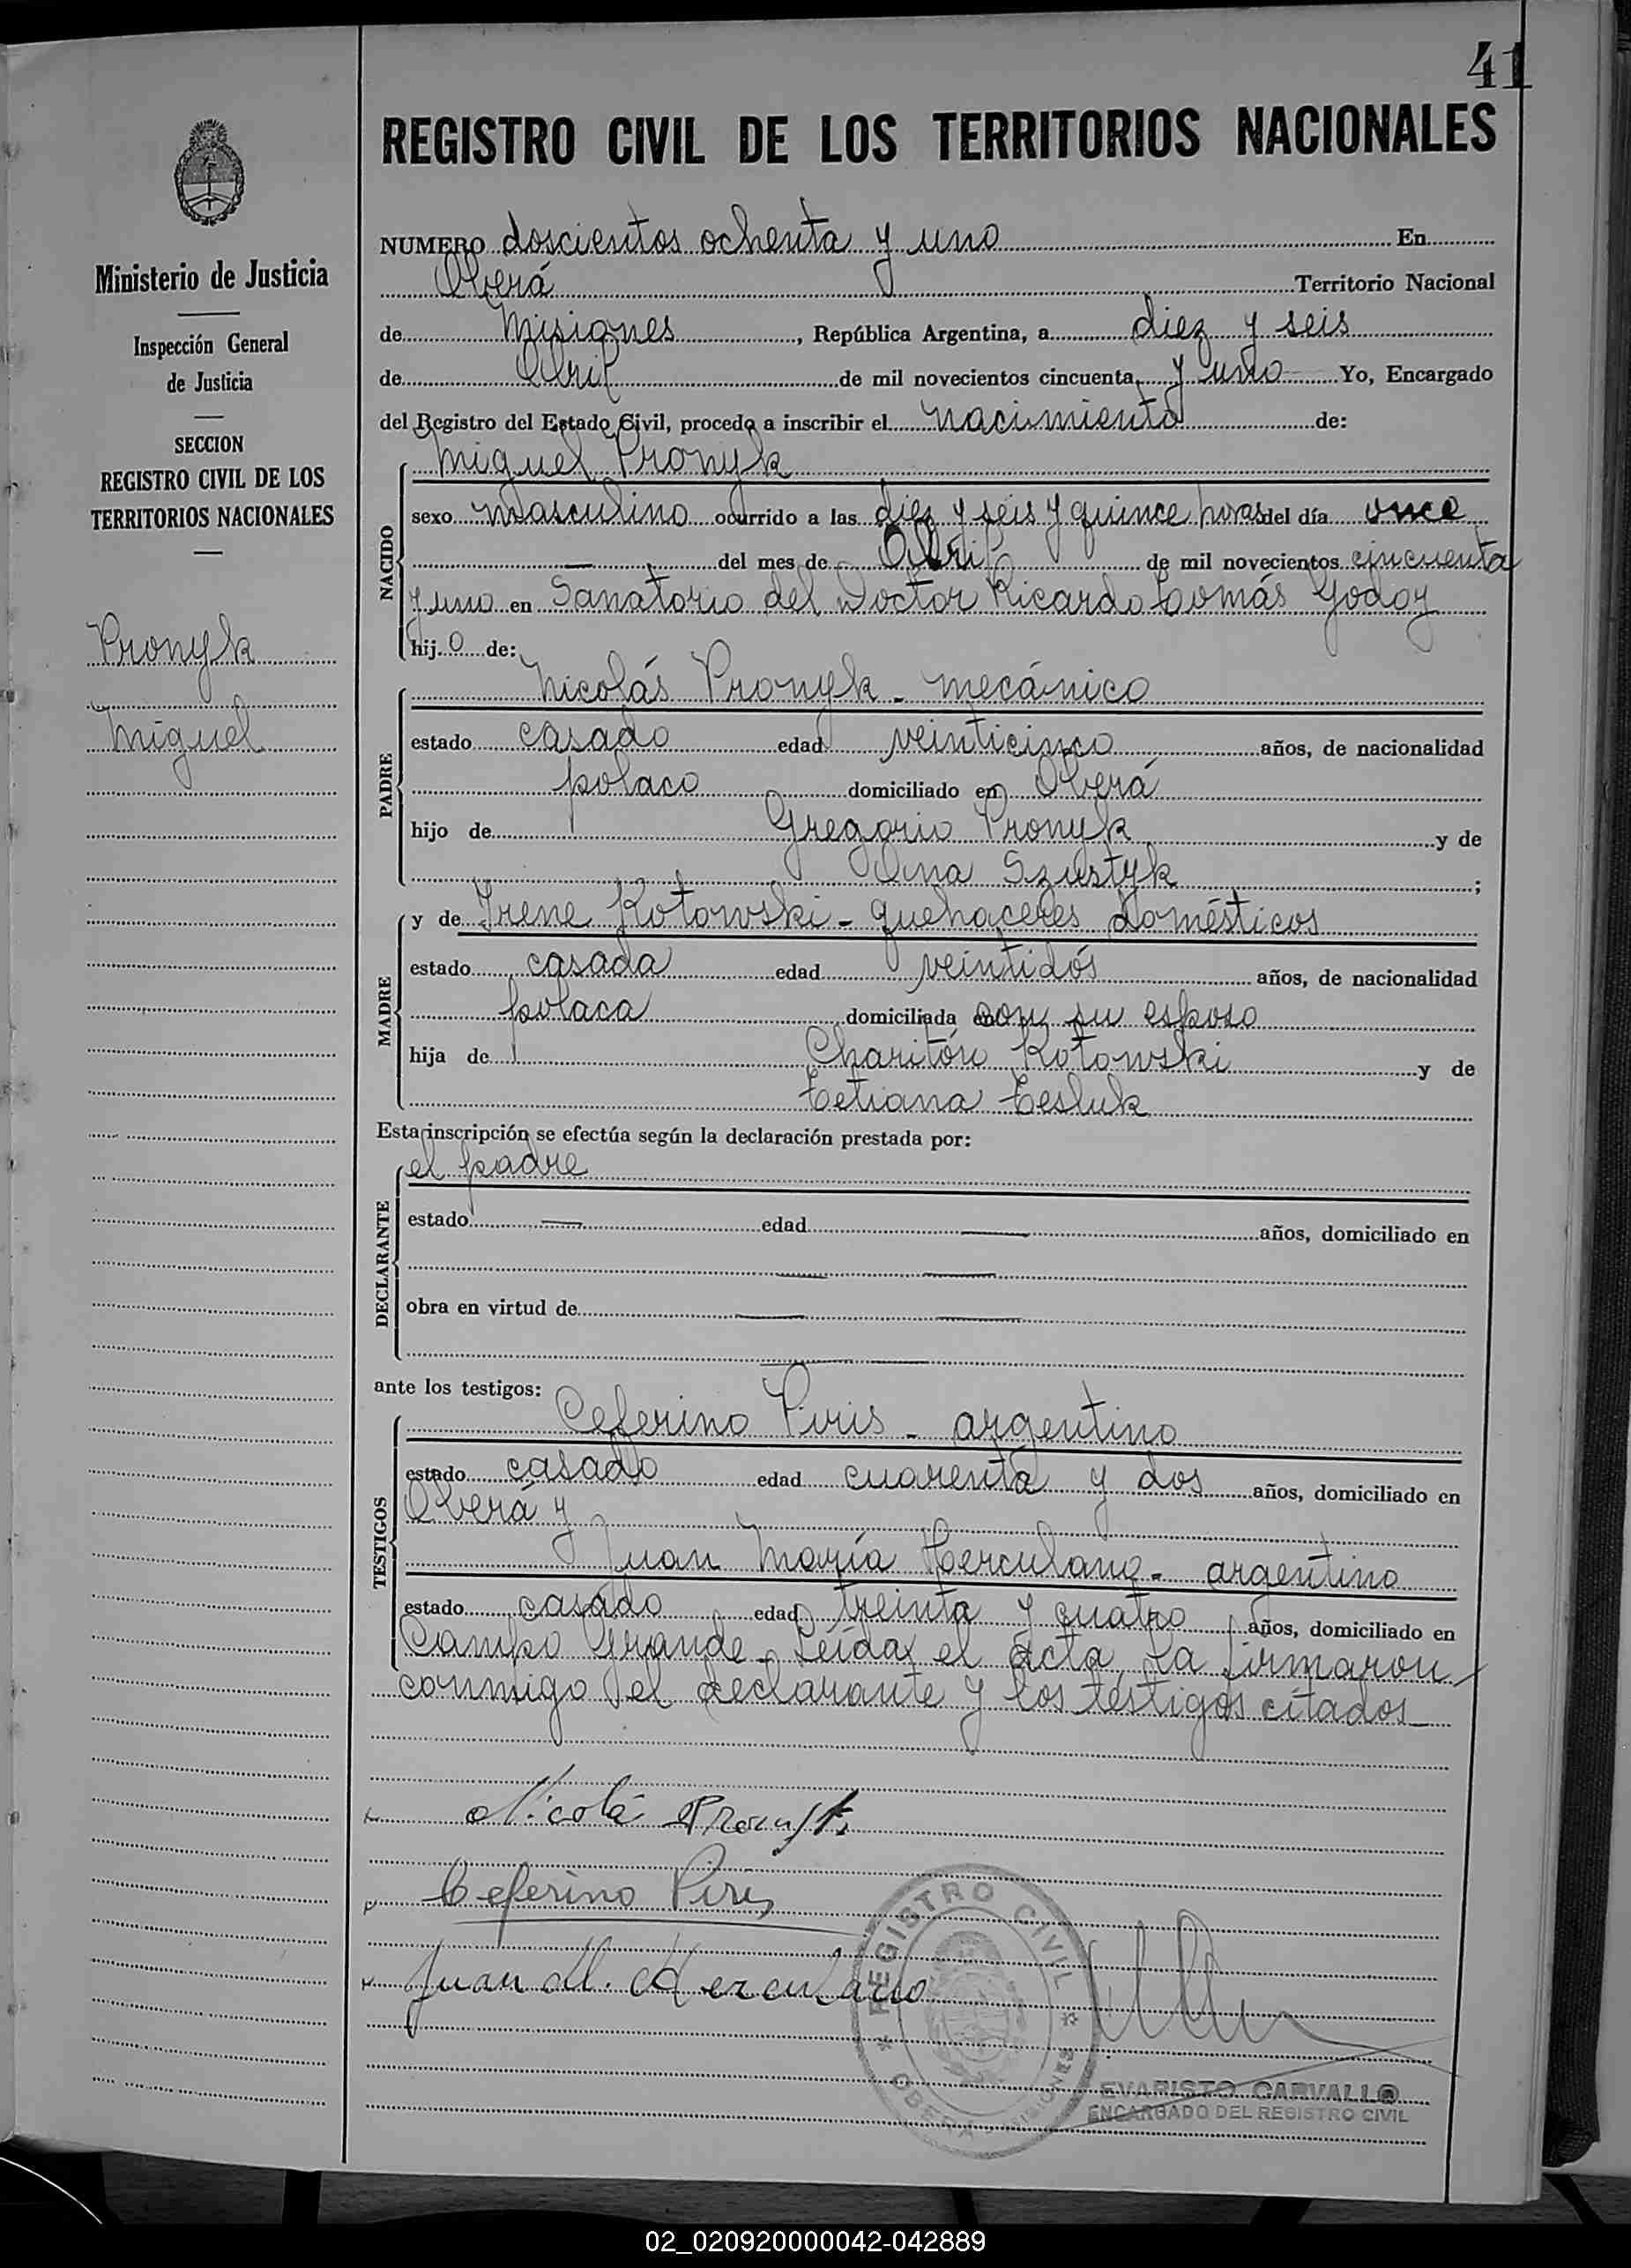 41
REGISTRO CIVIL DE LOS TERRITORIOS NACIONALES
Ministerio de Justicia
Inspección General
de Justicia
SECCION
REGISTRO CIVIL DE LOS
TERRITORIOS NACIONALES
Pronyk
Miguel
NUMERO doscientos ochenta y uno En
Oberá Territorio Nacional
de Misiones, República Argentina, a diez y seis
de Abril de mil novecientos cincuenta y uno Yo, Encargado
del Registro del Estado Civil, procedo a inscribir el nacimiento de:
NACIDO
Miguel Pronyk
sexo masculino ocurrido a las diez y seis y quince horas del día once
— del mes de Abril de mil novecientos cincuenta
y uno en Sanatorio del Doctor Ricardo Tomás Godoy
hijo de:
PADRE
Nicolás Pronyk - mecánico
estado casado edad veinticinco años, de nacionalidad
polaco domiciliado en Oberá
hijo de Gregorio Pronyk y de
Ana Szustyk;
MADRE
y de Irene Kotowski - quehaceres domésticos
estado casada edad veintidós años, de nacionalidad
polaca domiciliada en con su esposo
hija de Charitón Kotowski y de
Tetiana Tesluk
Esta inscripción se efectúa según la declaración prestada por:
DECLARANTE
el padre
estado — edad — años, domiciliado en
— —
obra en virtud de — —
— —
ante los testigos:
TESTIGOS
Ceferino Piris - argentino
estado casado edad cuarenta y dos años, domiciliado en
Oberá y
Juan María Herculano - argentino
estado casado edad treinta y cuatro años, domiciliado en
Campo Grande. Leída el acta, la firmaron
conmigo el declarante y los testigos citados
Nicolá Pronyk
Ceferino Piris
Juan M. Herculano
REGISTRO CIVIL
OBERÁ - MISIONES
EVARISTO CARVALLO
ENCARGADO DEL REGISTRO CIVIL
02_020920000042-042889